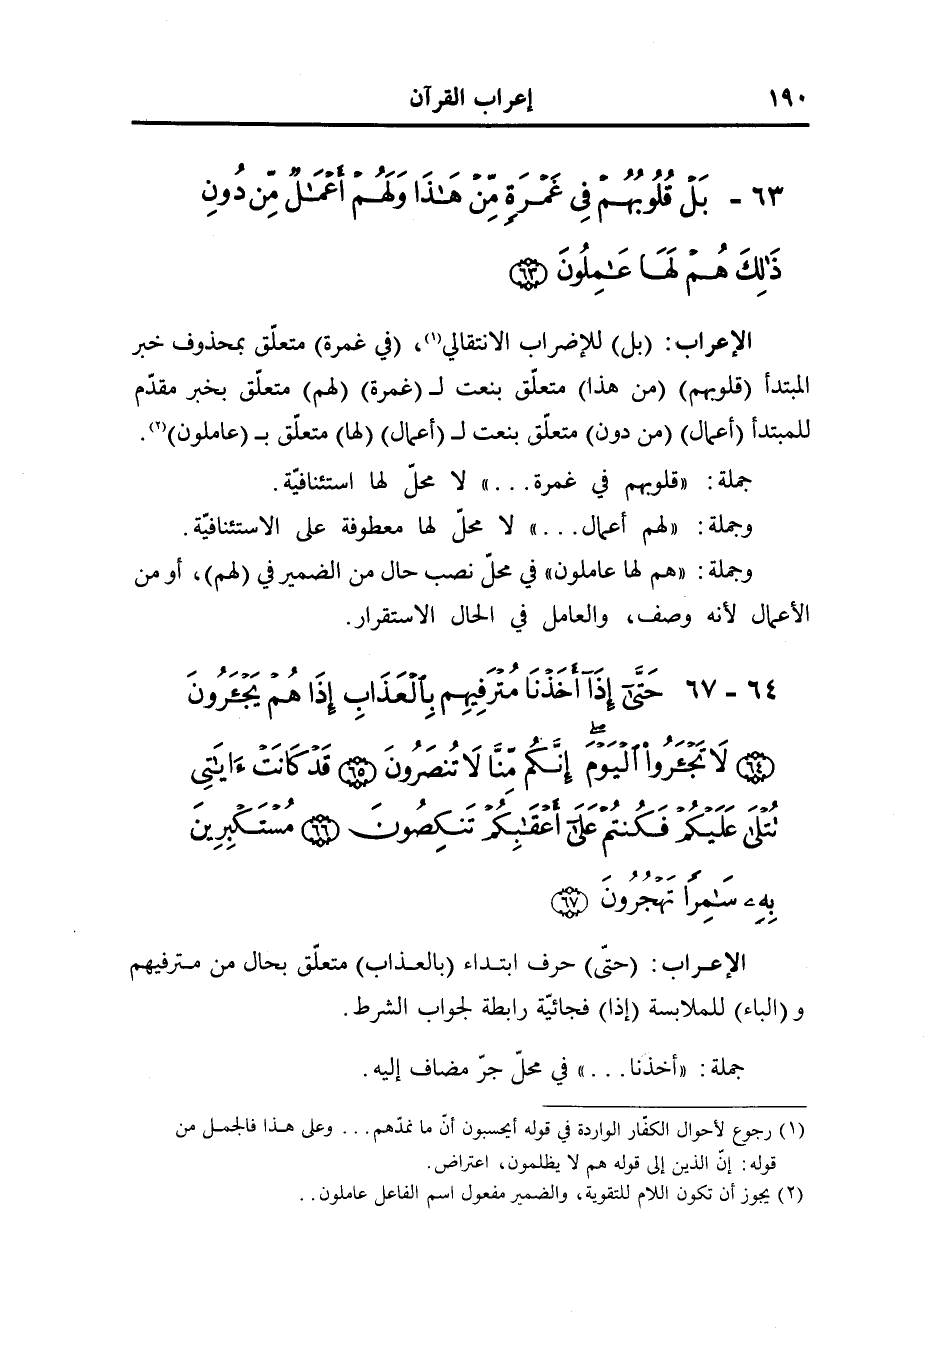 ١٩٠ إعراب القرآن
٦٣ - بَلْ قُلُوبُهُمْ فِى غَمْرَةٍ مِّنْ هَـٰذَا وَلَهُمْ أَعْمَـٰلٌ مِّن دُونِ
ذَٰلِكَ هُمْ لَهَا عَـٰمِلُونَ ﴿٦٣﴾
الإعراب: (بل) للإضراب الانتقالي(١)، (في غمرة) متعلّق بمحذوف خبر
المبتدأ (قلوبهم) (من هذا) متعلّق بنعت لـ (غمرة) (لهم) متعلّق بخبر مقدّم
للمبتدأ (أعمال) (من دون) متعلّق بنعت لـ (أعمال) (لها) متعلّق بـ (عاملون)(٢).
جملة: «قلوبهم في غمرة...» لا محلّ لها استئنافيّة.
وجملة: «لهم أعمال...» لا محلّ لها معطوفة على الاستئنافيّة.
وجملة: «هم لها عاملون» في محلّ نصب حال من الضمير في (لهم)، أو من
الأعمال لأنه وصف، والعامل في الحال الاستقرار.
٦٤ - ٦٧ حَتَّىٰٓ إِذَآ أَخَذْنَا مُتْرَفِيهِم بِٱلْعَذَابِ إِذَا هُمْ يَجْـَٔرُونَ
﴿٦٤﴾ لَا تَجْـَٔرُوا۟ ٱلْيَوْمَ ۖ إِنَّكُم مِّنَّا لَا تُنصَرُونَ ﴿٦٥﴾ قَدْ كَانَتْ ءَايَـٰتِى
تُتْلَىٰ عَلَيْكُمْ فَكُنتُمْ عَلَىٰٓ أَعْقَـٰبِكُمْ تَنكِصُونَ ﴿٦٦﴾ مُسْتَكْبِرِينَ
بِهِۦ سَـٰمِرًا تَهْجُرُونَ ﴿٦٧﴾
الإعراب: (حتّى) حرف ابتداء (بالعذاب) متعلّق بحال من مترفيهم
و (الباء) للملابسة (إذا) فجائيّة رابطة لجواب الشرط.
جملة: «أخذنا...» في محلّ جرّ مضاف إليه.
(١) رجوع لأحوال الكفّار الواردة في قوله أيحسبون أنّ ما نمدّهم... وعلى هذا فالجمل من
قوله: إنّ الذين إلى قوله هم لا يظلمون، اعتراض.
(٢) يجوز أن تكون اللام للتقوية، والضمير مفعول اسم الفاعل عاملون..